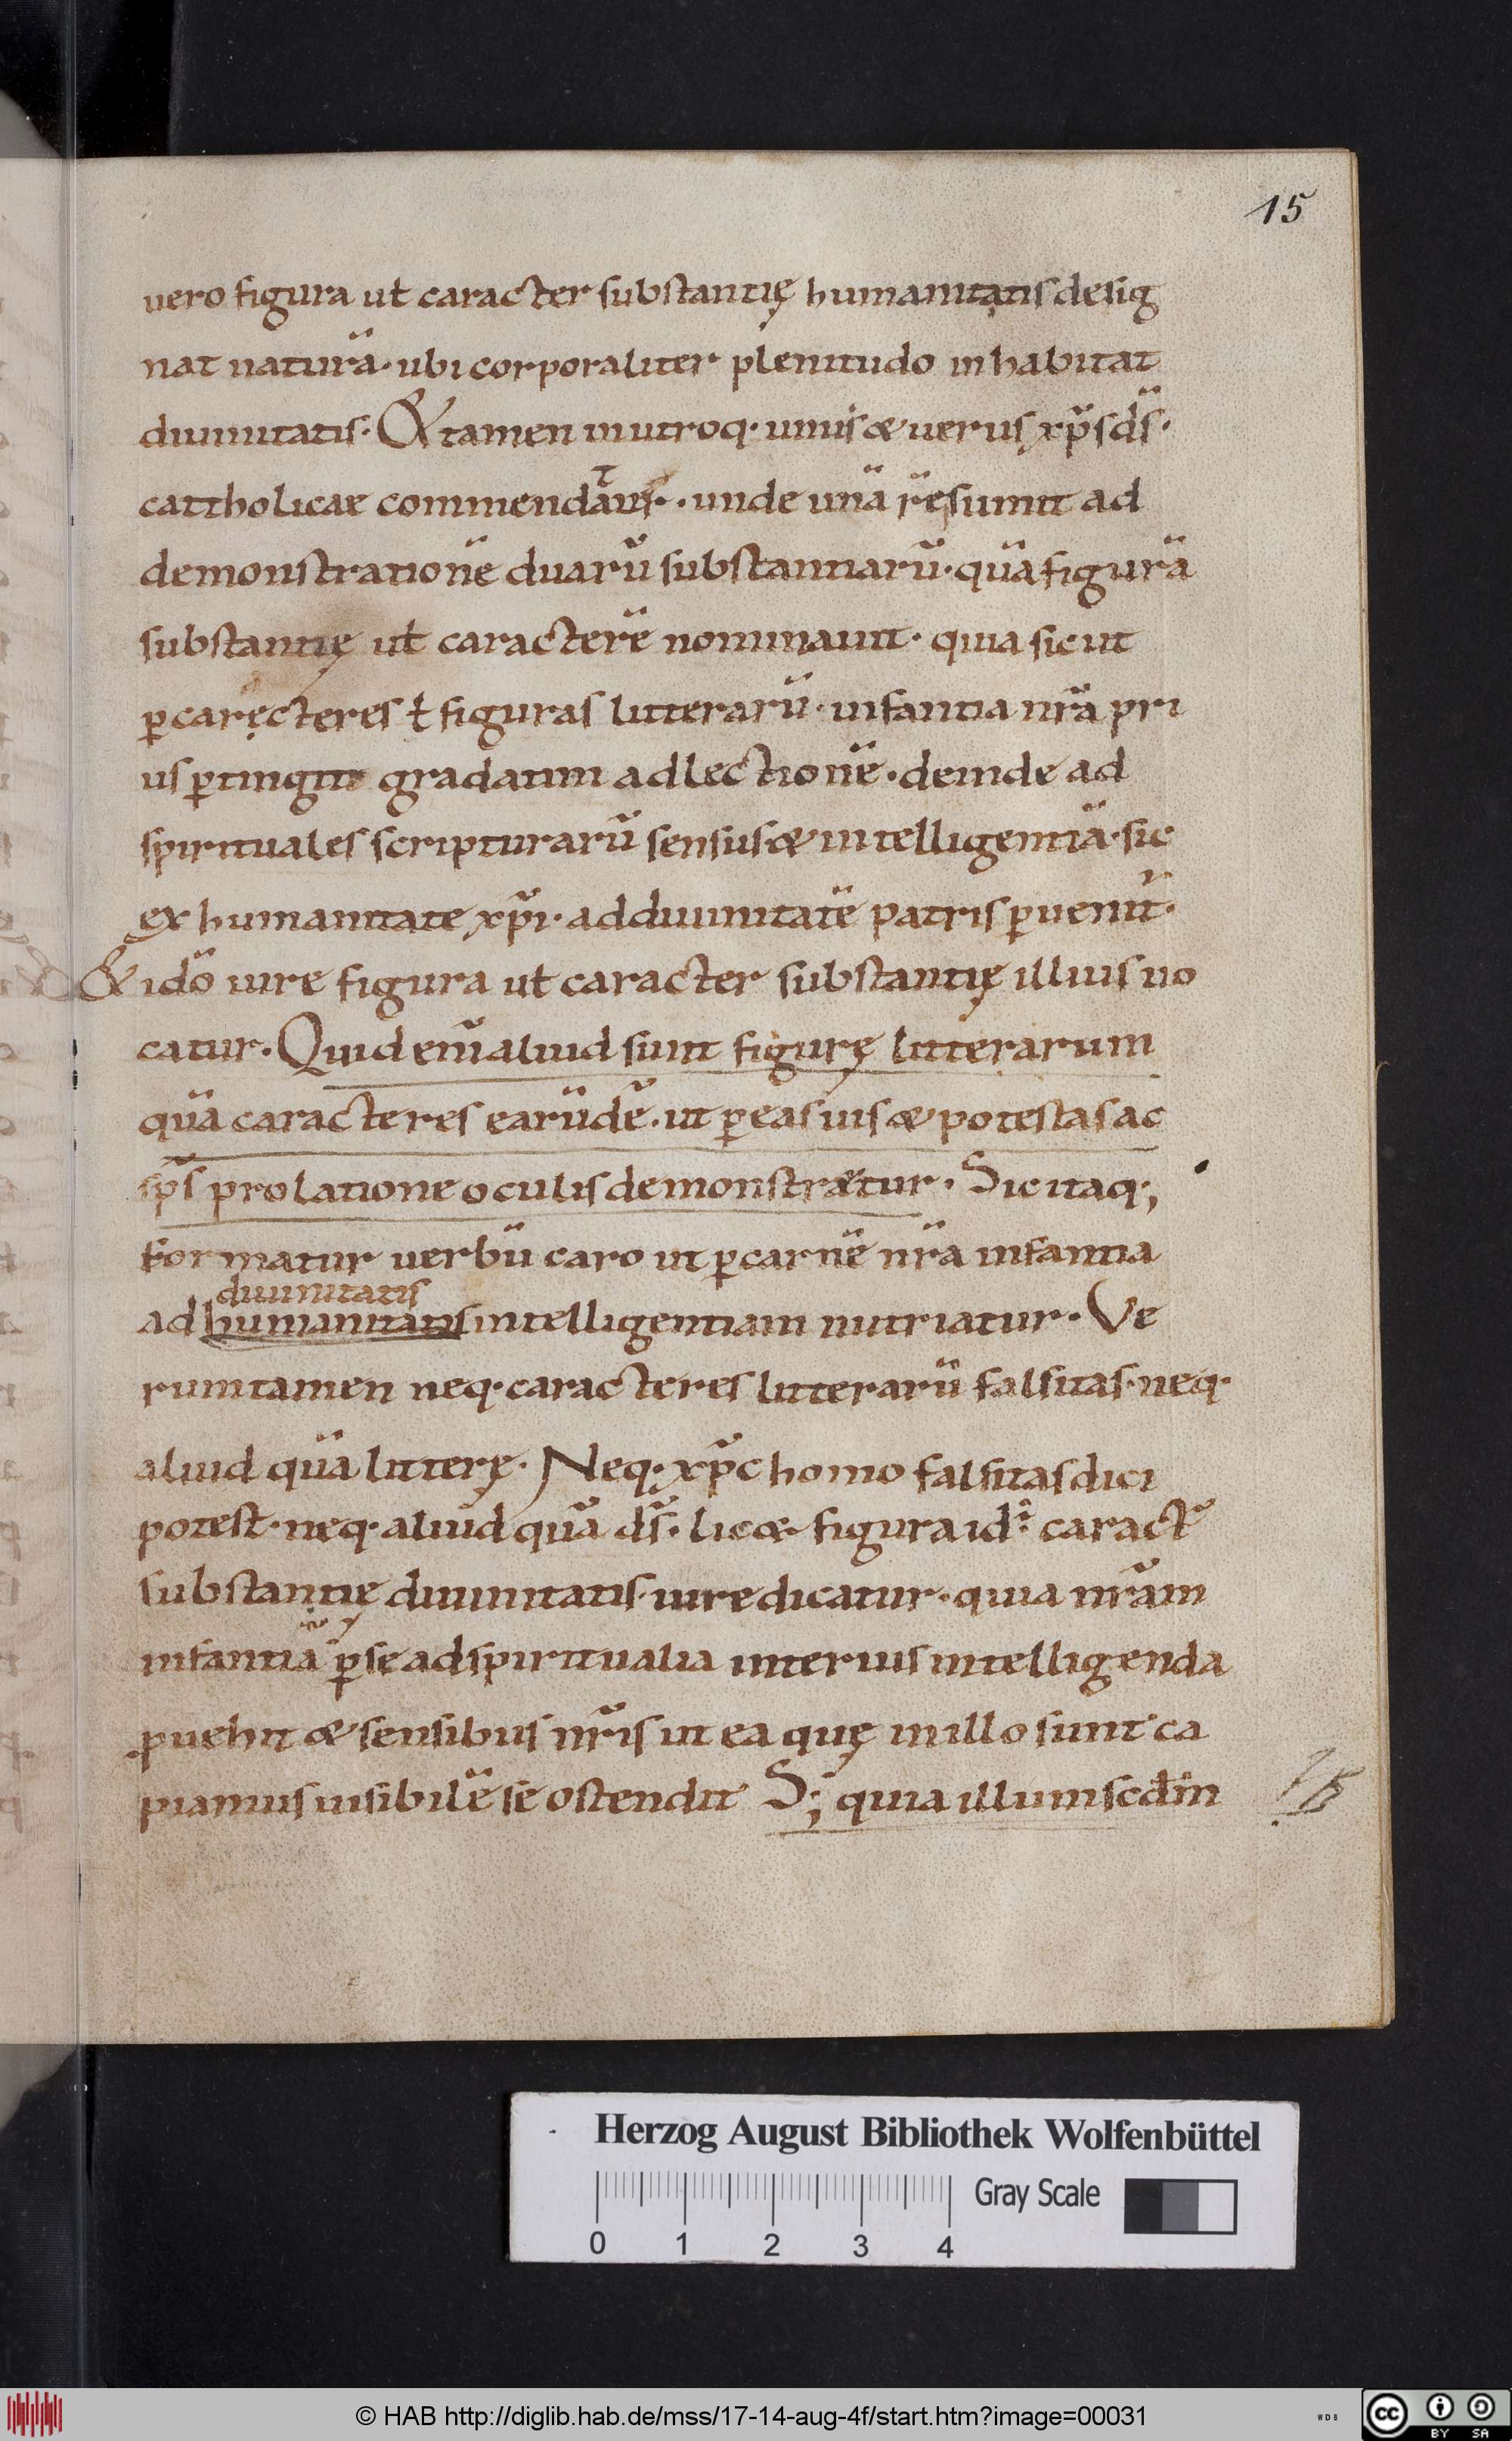 15
uero figura ut caracter substantię humanitatis desig
nat naturā· ubi corporaliter plenitudo inhabitat
diuinitatis· & tamen in utroq· unus & uerus xp̄s d̄s·
cattholicae commendatur· unde unā resumit ad
demonstrationē duarū substantiarū· quā figurā
substantię ut caracterē nominauit· quia sicut
ꝑ carecteres ł figuras litterarū· infantia nr̄a pri
us ꝑtingit gradatim ad lectionē· deinde ad
spirituales scripturarū sensus & intelligentiā· sic
ex humanitate xp̄i· ad diuinitatē patris ꝑuenit̄·
& idō iure figura ut caracter substantię illius uo
catur· Quid enī aliud sunt figurę litterarum
quā caracteres earūdē· ut ꝑ eas uis & potestas ac
sp̄s prolatione oculis demonstratur· Sic itaq;
formatur uerbū caro ut ꝑ carnē nr̄a infantia
diuinitatis
ad humanitatis intelligentiam nutriatur· Ve
rumtamen neq· caracteres litterarū falsitas· neq·
aliud quā litterę· Neq· xp̄c homo falsitas dici
potest· neq· aliud quā d̄s· lic& figura id· caract̄
substantię diuinitatis iure dicatur· quia nr̄am
infantiā ꝑ se ad spiritualia interius intelligenda
ꝓuehit & sensibus nr̄is ut ea quę in illo sunt ca
piamus uisibilē se ostendit S; quia illum scd̄m
Herzog August Bibliothek Wolfenbüttel
Gray Scale
0 1 2 3 4
© HAB http://diglib.hab.de/mss/17-14-aug-4f/start.htm?image=00031
WDB
cc BY SA